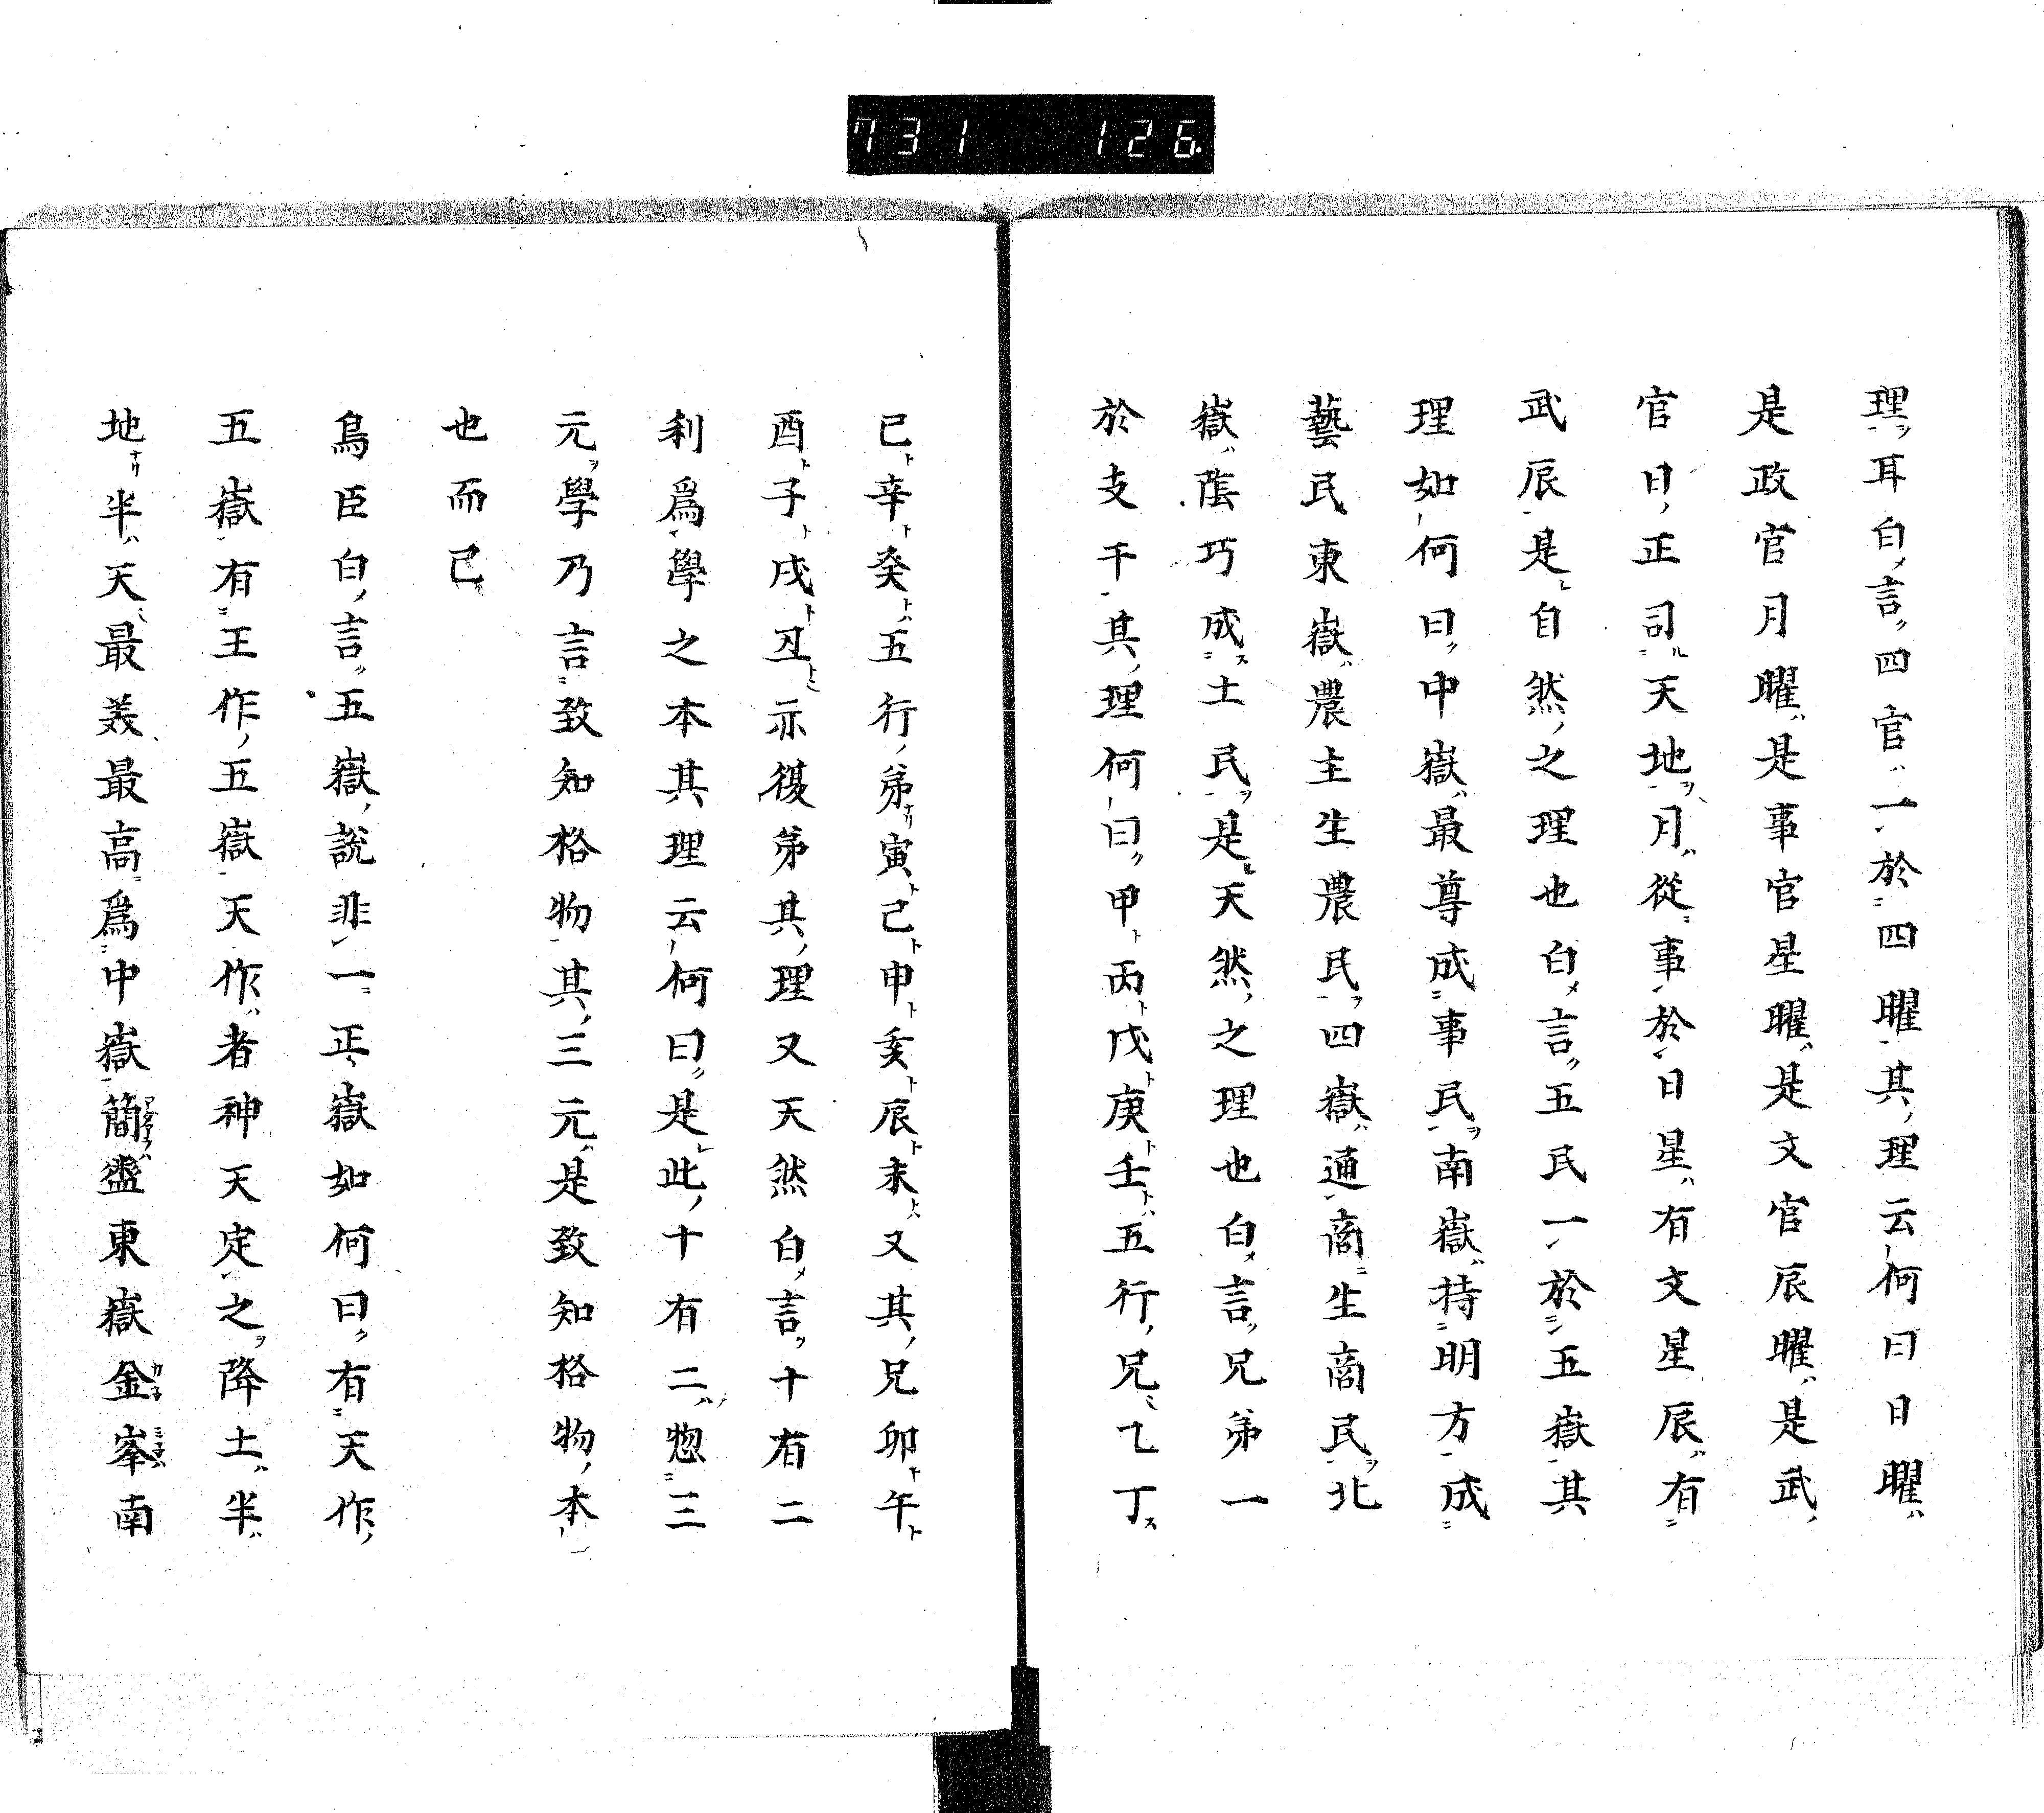 731 126
理耳白言四官一於四曜其理云何曰日曜
是政官月曜是事官星曜是文官辰曜是武
官日正司天地月從事於日星有文星辰有
武辰是自然之理也白言五民一於五嶽其
理如何曰中嶽最尊成事民南嶽持明方成
藝民東嶽農主生農民四嶽通商生商民北
嶽蔭巧成土民是天然之理也白言兄弟一
於支干其理何曰甲丙戊庚壬五行兄乙丁
己辛癸五行弟寅己申亥辰未又其兄卯午
酉子戌丑亦復弟其理又天然白言十有二
利爲學之本其理云何曰是此十有二惣三
元學乃言致知格物其三元是致知格物本
也而已
烏臣白言五嶽說非一正嶽如何曰有天作
五嶽有王作五嶽天作者神天定之降土半
地半天最美最高爲中嶽簡盡東嶽金峯南